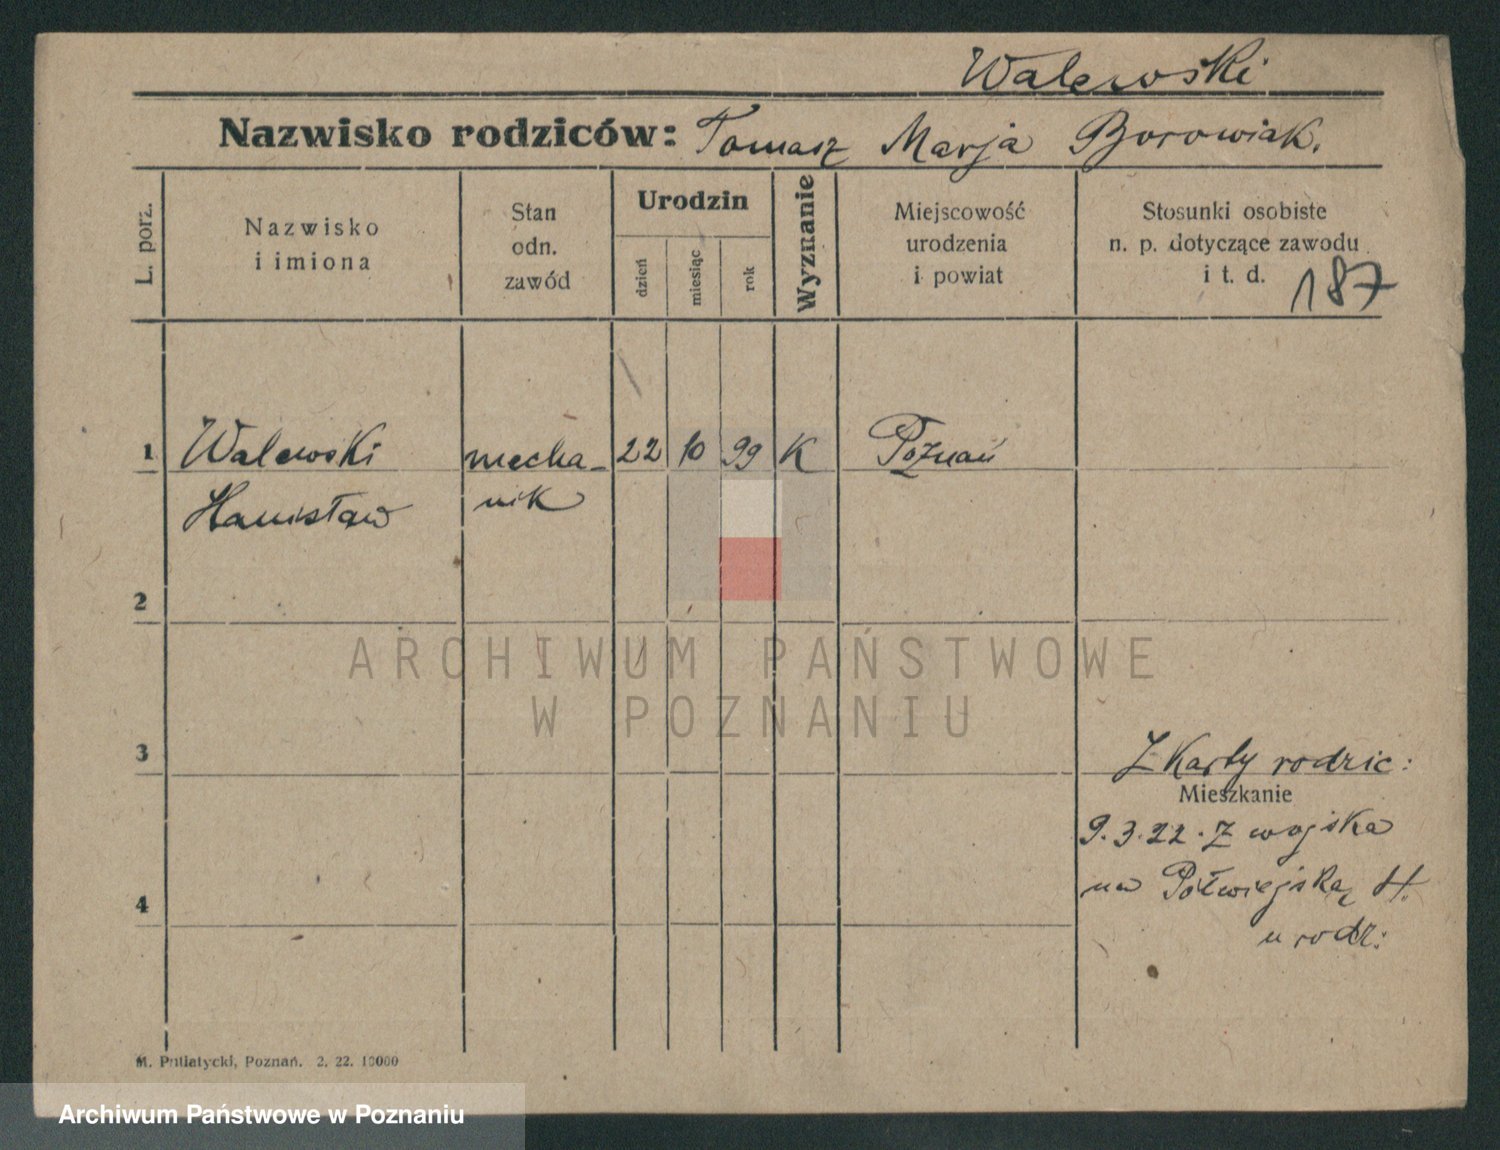 Walewski
Nazwisko rodziców: Tomasz Marja Borowiak.
L. porz.
Nazwisko
i imiona
Stan
odn.
zawód
Urodzin
dzień
miesiąc
rok
Wyznanie
Miejscowość
urodzenia
i powiat
Stosunki osobiste
n. p. dotyczące zawodu
i t. d.
187
1 Walewski mecha- 22 10 99 K Poznań
Stanisław nik
2
ARCHIWUM PAŃSTWOWE
W POZNANIU
3
Z Karty rodzic:
Mieszkanie
9.3.22. Z wojska
na Półwiejską
4
u rodz:
M. Putiatycki, Poznań. 2. 22. 10000
Archiwum Państwowe w Poznaniu